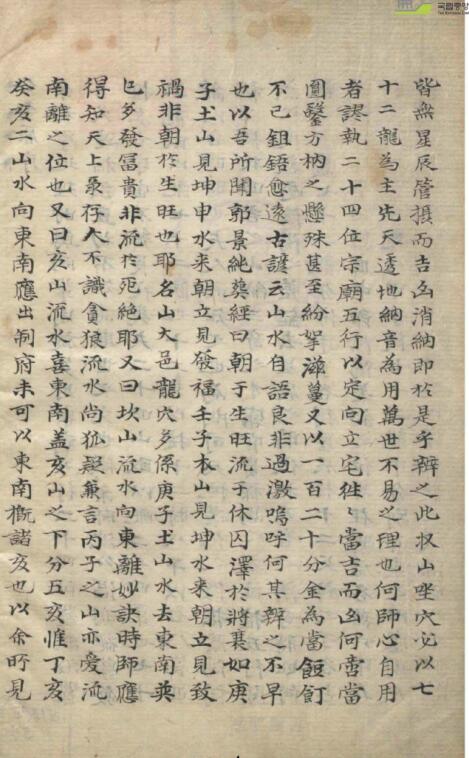 皆無星辰管攝而吉凶消納即於是乎辨之此扠山坐穴必以七
十二龍為主先天透地納音為用萬世不易之理也何師心自用
者謬執二十四位宗廟五行以定向立宅往〻當吉而凶何啻當
圓鑿方枘之懸殊甚至紛挐滋蔓又以一百二十分金為當餖飣
不已鉏鋙愈遠古諺云山水自語良非過激嗚呼何其辨之不早
也以吾所聞郭景純葬經曰朝于生旺流于休囚澤於將衰如庚
子土山見坤申水来朝立見發福壬子木山見坤水来朝立見致
禍非朝於生旺也耶名山大邑龍穴多係庚子土山水去東南巽
巳多發冨貴非流於死絕耶又曰坎山流水向東離妙訣時師應
得知天上衆存人不識貪狼流水尚狐疑兼言丙子之山亦愛流
南離之位也又曰亥山流水喜東南盖亥山之下分五亥惟丁亥
癸亥二山水向東南應出制府未可以東南概諸亥也以余所見